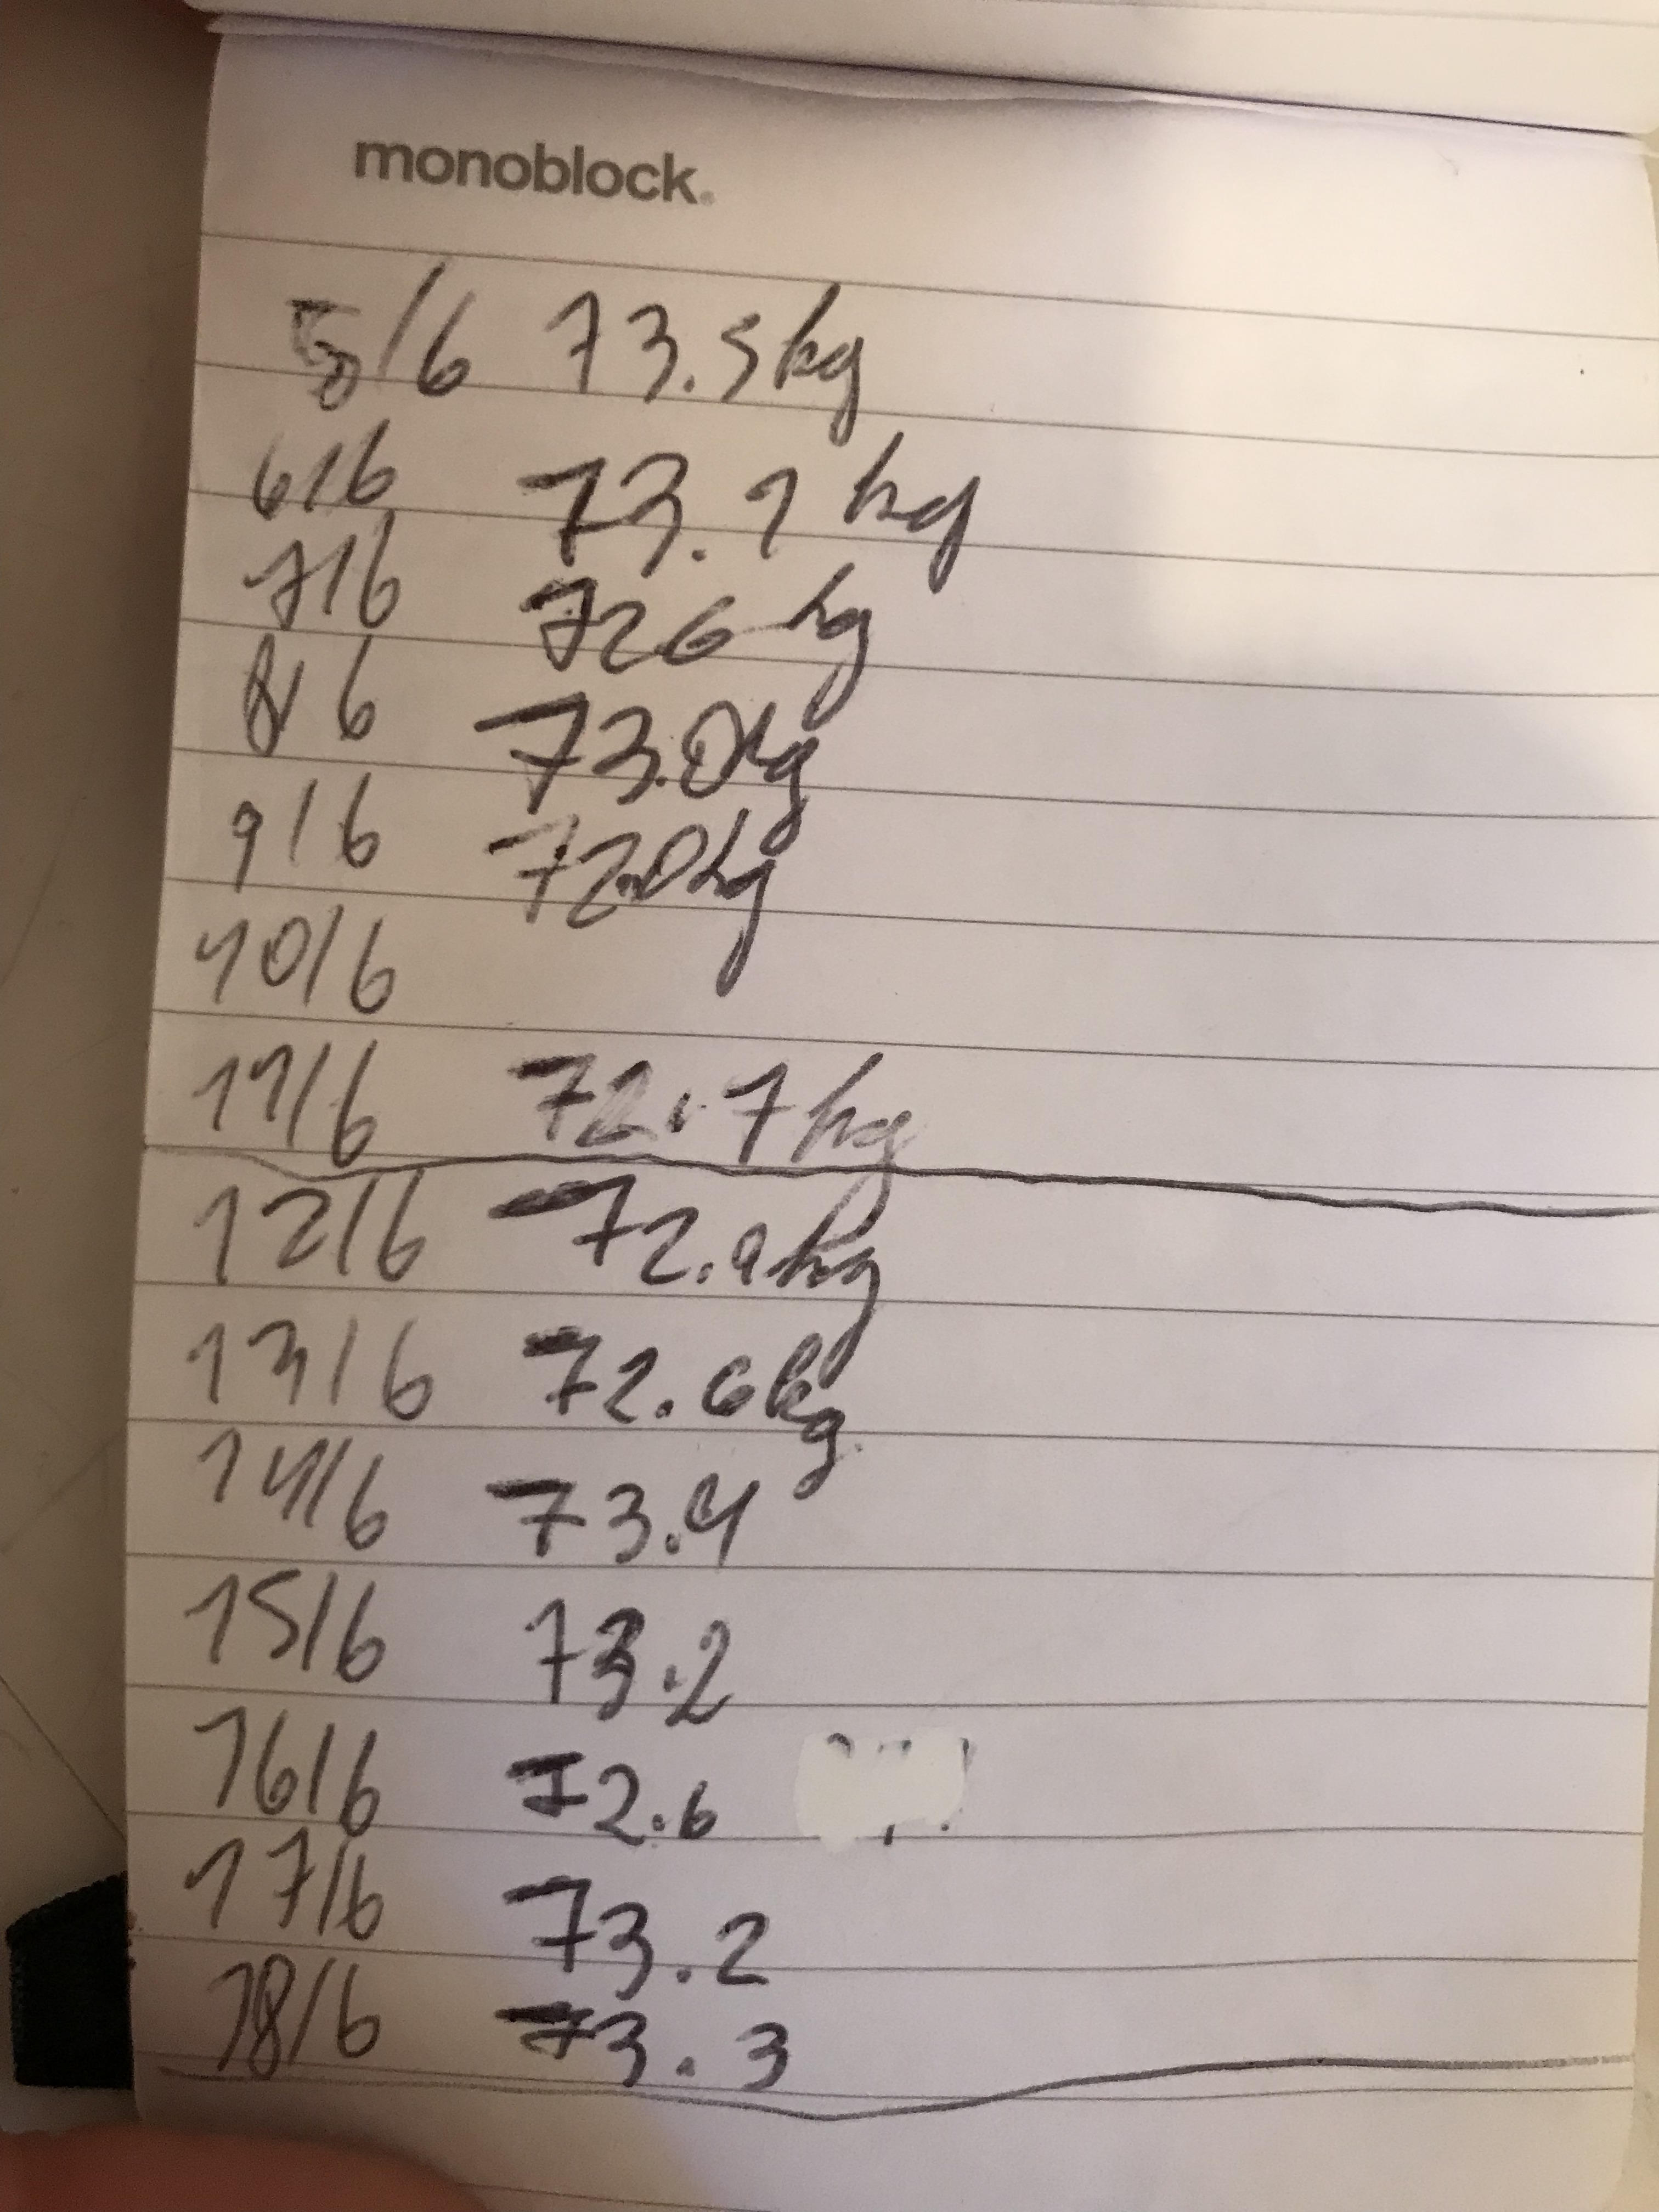 monoblock.
5/6 73.5kg
6/6 73.1 kg
7/6 72.6 kg
8/6 73.0kg
9/6 72.0kg
10/6
11/6 72.7kg
12/6 72.9kg
13/6 72.6kg.
14/6 73.4
15/6 73.2
16/6 72.6
17/6 73.2
18/6 73.3